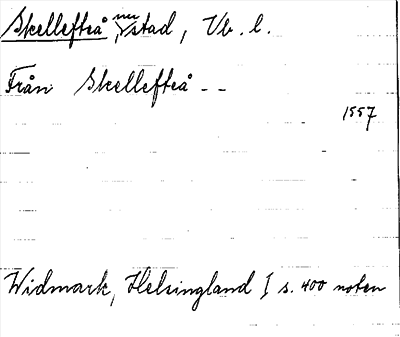 Skellefteå nu stad, Vb. l.
Från Skellefteå - -
1557
Widmark, Helsingland I s. 400 noten